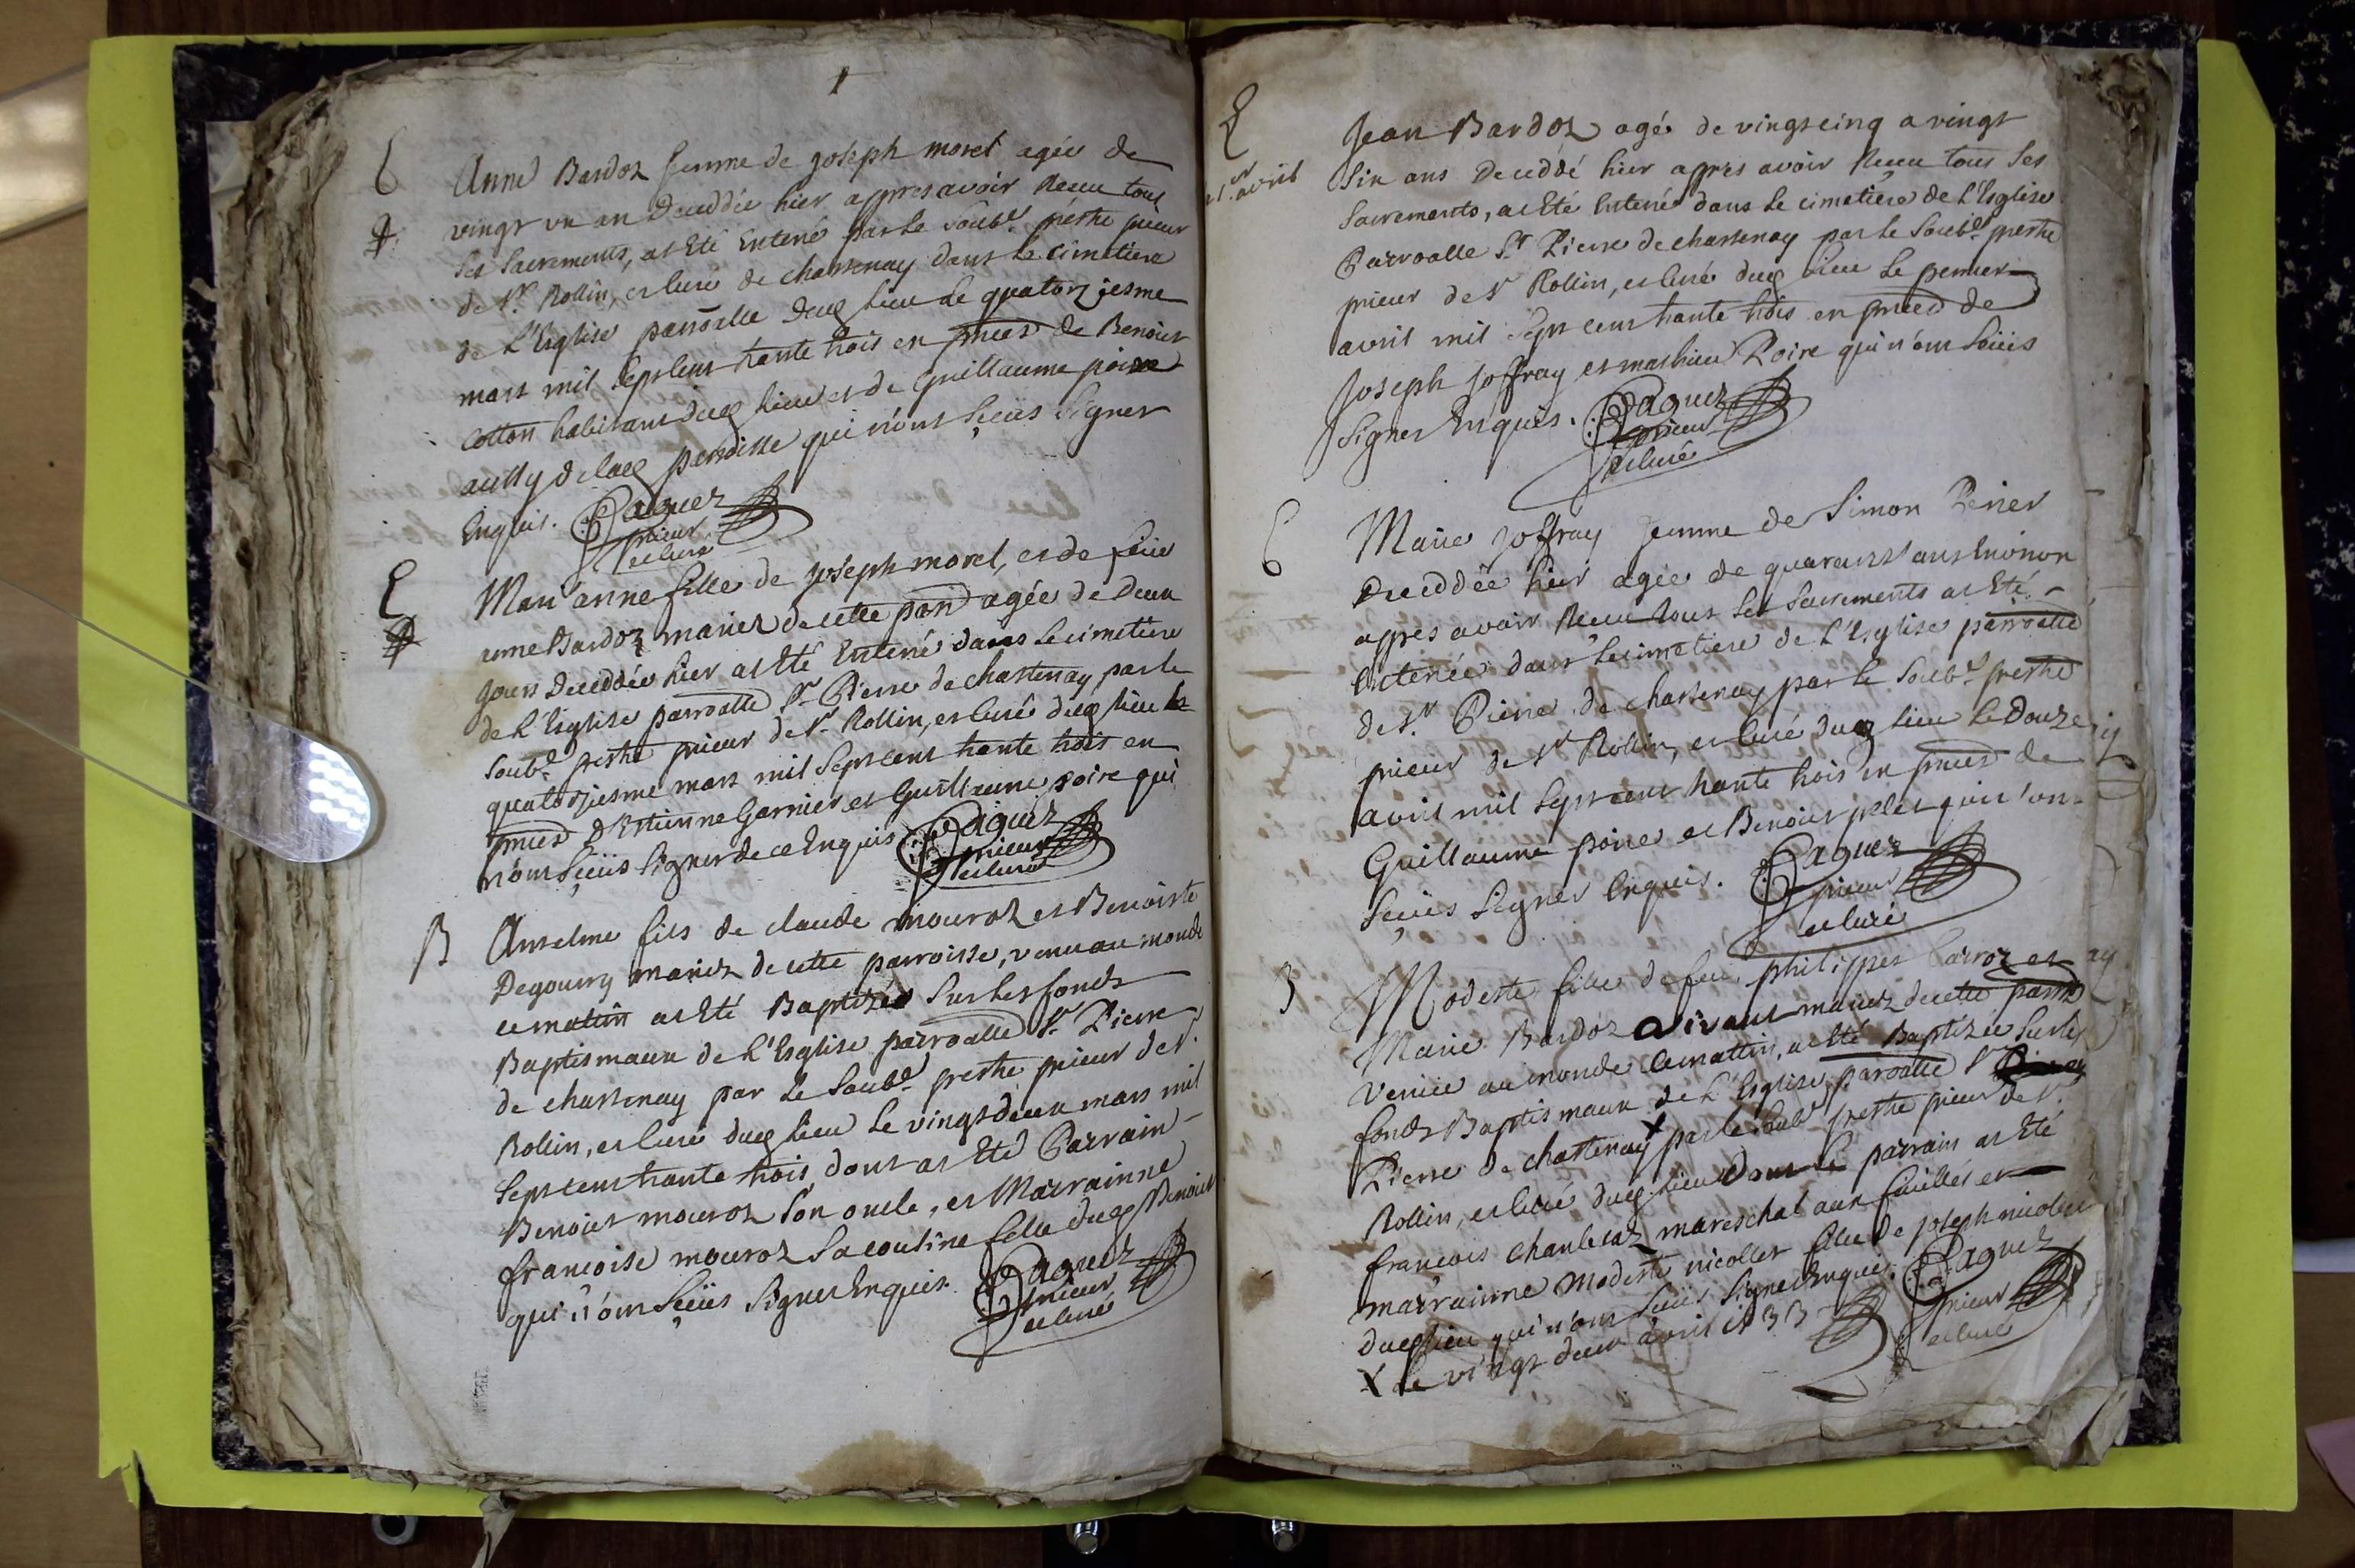 E
Anne Bardoz femme de joseph morel agée de
vingt un an Deceddée hier appres avoir Receu tous
Ses Sacrements, at Eté Enteré par le Soub.é prestre prieur
de S.t Rollin, et curé de chastenay dans le cimetiere
de L'Esglise parroelle duq lieu Le quatorziesme
mars mil Sept cent trante trois en pnces de Benoict
Cotton habitant duq lieu et de Guillaume poire
aussy de lad parroisse qui n'ont Sceüs Signer
Enquis. Paquez
prieur
et curé
E
Mari anne fille de joseph morel, et de feüe
anne Bardoz mariez de cette parr agée de Deux
jours Deceddée hier at Eté Enteré dans le cimetiere
de L'Esglise parroalle S.t Pierre de chastenay par le
Soub.é prestre prieur de S.t Rollin, et curé duq lieu le
quatorziesme mars mil Sept cent trante trois en
pnces d'Estienne Garnier et Guillaume poire qui
n'ont Sceüs Signer de ce Enquis Paquez
prieur
et curé
B
Anselme fils de claude mouroz et Benoiste
Degourg mariez de cette parroisse, venu au monde
ce matin at Eté Baptizéé Sur les fonds
Baptismaux de L'Esglise parroalle S.t Pierre
de chastenay par Le Soub.é prestre prieur de S.t
Rollin, et curé duq lieu Le vingt deux mars mil
Sept cent trante trois, dont at Eté Parrain
Benoict mouroz Son oncle, et Marrainne
francoise mouroz Sa cousine fille duq Benoict
qui n'ont Sceüs Signer Enquis. Paquez
prieur
et curé
E
1er avril
Jean Bardoz agé de vingt cinq a vingt
Six ans Deceddé hier appres avoir Receu tous Ses
Sacrements, at Eté Enteré dans Le cimetiere de L'Esglise
Parroalle S.t Pierre de chastenay par le Soub.é prestre
prieur de S.t Rollin, et curé duq lieu Le premier
avril mil Sept cent trante trois en pnces de
Joseph joffray et mathieu Poire qui n'ont Sceüs
Signer Enquis. Paquez
prieur
et curé
E
Marie joffray femme de Simon Perier
Deceddée hier agée de quarante ans Environ
appres avoir Receu tous Ses Sacrements at Eté
Enterée dans Le cimetiere de L'Esglise parroalle
de S.t Pierre de chastenay par le Soub.é prestre
prieur de S.t Rollin, et curé duq lieu Le Douze
avril mil Sept cent trante trois en pnces de
Guillaume poire et Benoict pelet qui n'ont
Sceüs Signer Enquis. Paquez
prieur
et curé
B
Modeste fille de feu philippes Carroz et
Marie Bardoz vivant mariez de cette parr
Venüe au monde ce mattin, at Eté Baptizée Sur les
fonds Baptismaux de L'Esglise parroalle S.t
Pierre de chastenay X par le Soub.é prestre prieur de S.t
Rollin, et curé duq lieu Dont Le parrain at Eté
francois chanbeaz mareschal aux failles et
marrainne Modeste nicollet fille de joseph nicollet
duq lieu qui n'ont Sceüs Signer Enquis. Paquez
prieur
et curé
X Le vingt deux avril 1733